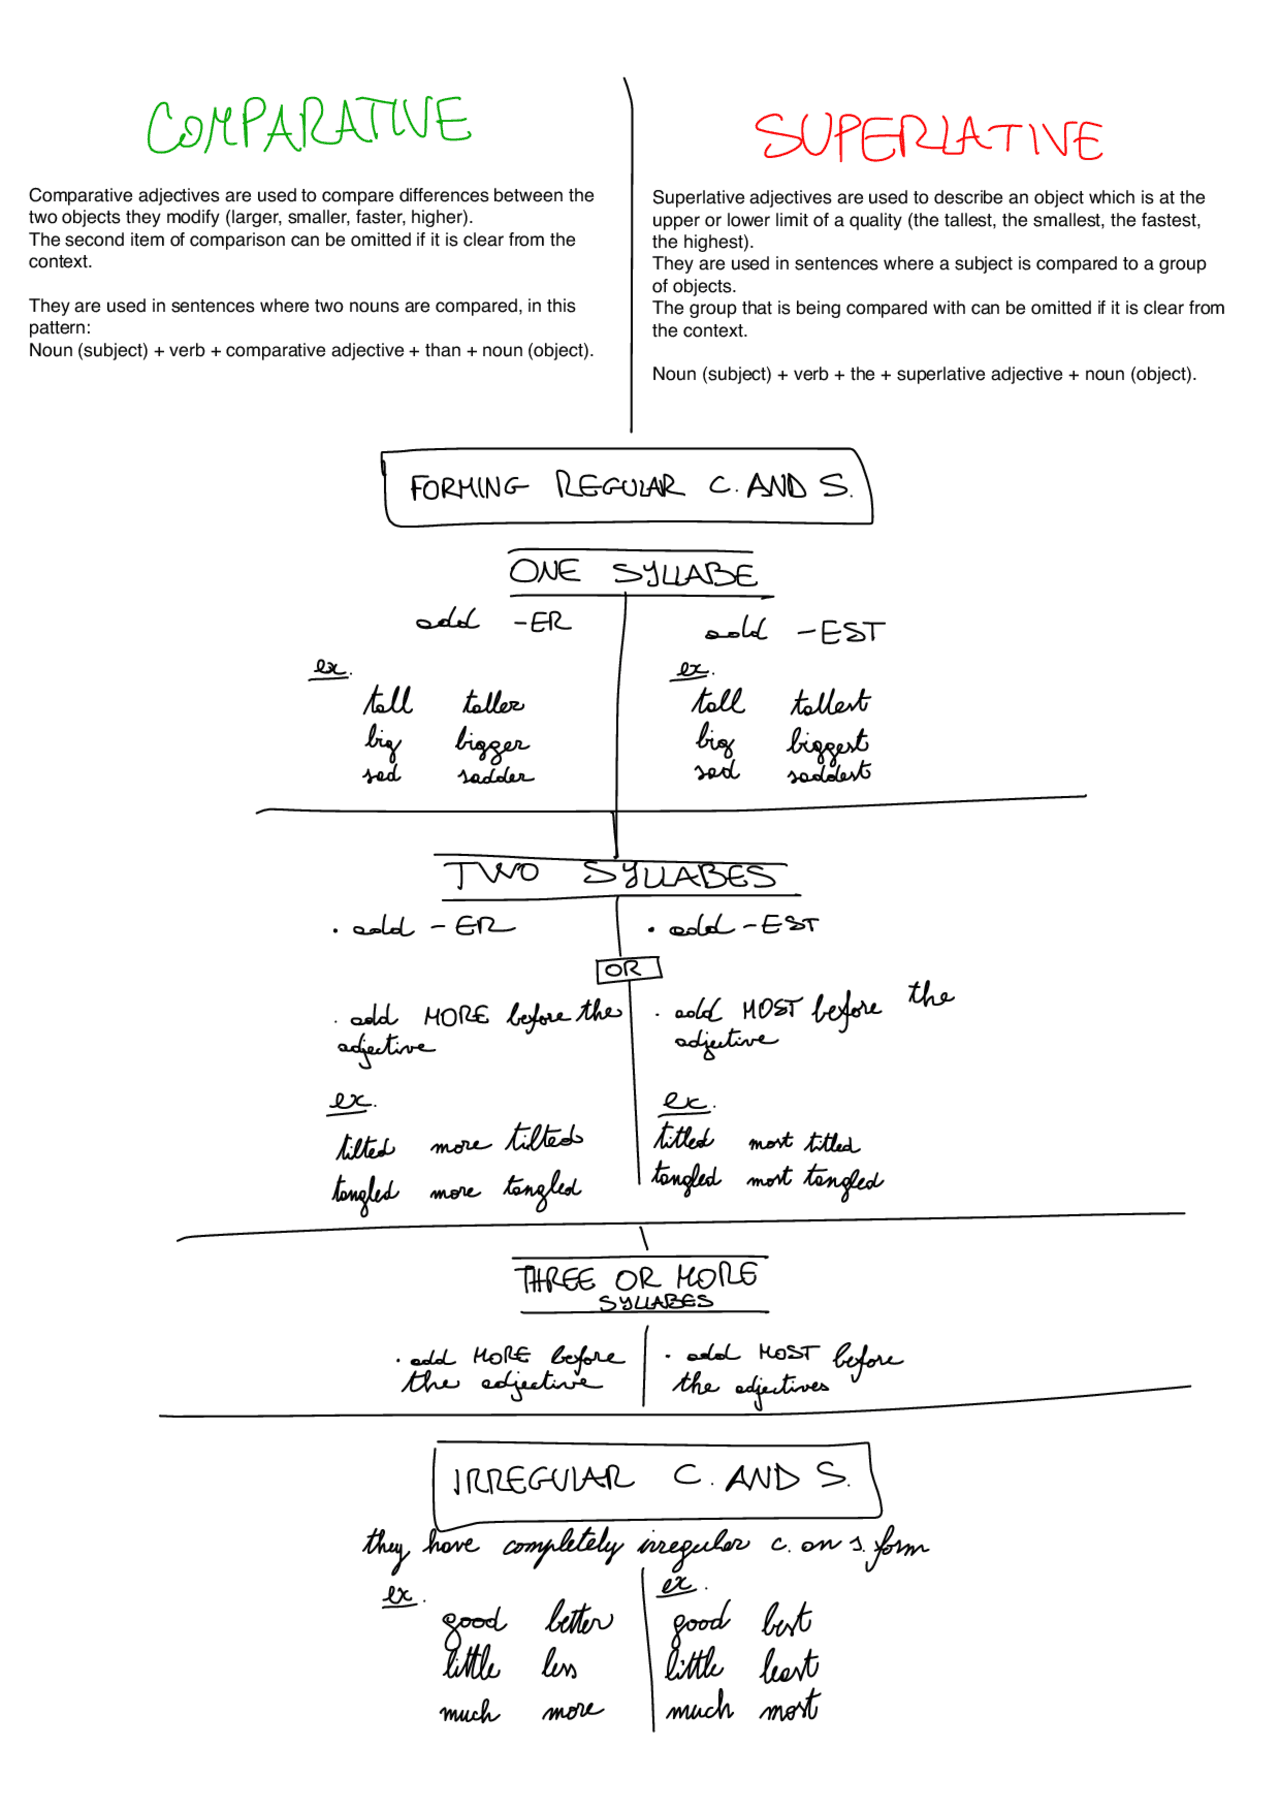 COMPARATIVE
Comparative adjectives are used to compare differences between the
two objects they modify (larger, smaller, faster, higher).
The second item of comparison can be omitted if it is clear from the
context.
They are used in sentences where two nouns are compared, in this
pattern:
Noun (subject) + verb + comparative adjective + than + noun (object).
SUPERLATIVE
Superlative adjectives are used to describe an object which is at the
upper or lower limit of a quality (the tallest, the smallest, the fastest,
the highest).
They are used in sentences where a subject is compared to a group
of objects.
The group that is being compared with can be omitted if it is clear from
the context.
Noun (subject) + verb + the + superlative adjective + noun (object).
FORMING REGULAR C. AND S.
ONE SYLLABE
add -ER
ex.
tall taller
big bigger
sad sadder
add -EST
ex.
tall tallest
big biggest
sad saddest
TWO SYLLABES
• add -ER
• add -EST
OR
• add MORE before the
adjective
ex.
tilted more tilted
tangled more tangled
• add MOST before the
adjective
ex.
titled most titled
tangled most tangled
THREE OR MORE
SYLLABES
• add MORE before
the adjective
• add MOST before
the adjectives
IRREGULAR C. AND S.
they have completely irregular c. on s. form
ex.
good better
little less
much more
ex.
good best
little least
much most